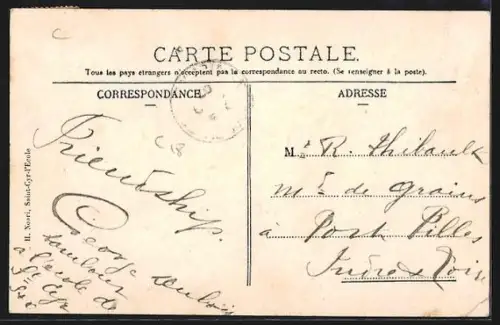 CARTE POSTALE.
Tous les pays étrangers n'acceptent pas la correspondance au recto. (Se renseigner à la poste).
CORRESPONDANCE
ADRESSE
Friendship.
George
tambour
à l'école de
St Cyr
S&O
M. R. Thibault
Md de grains
à Port Pilles
Indre & Loire
H. Noeri, Saint-Cyr-l'Ecole